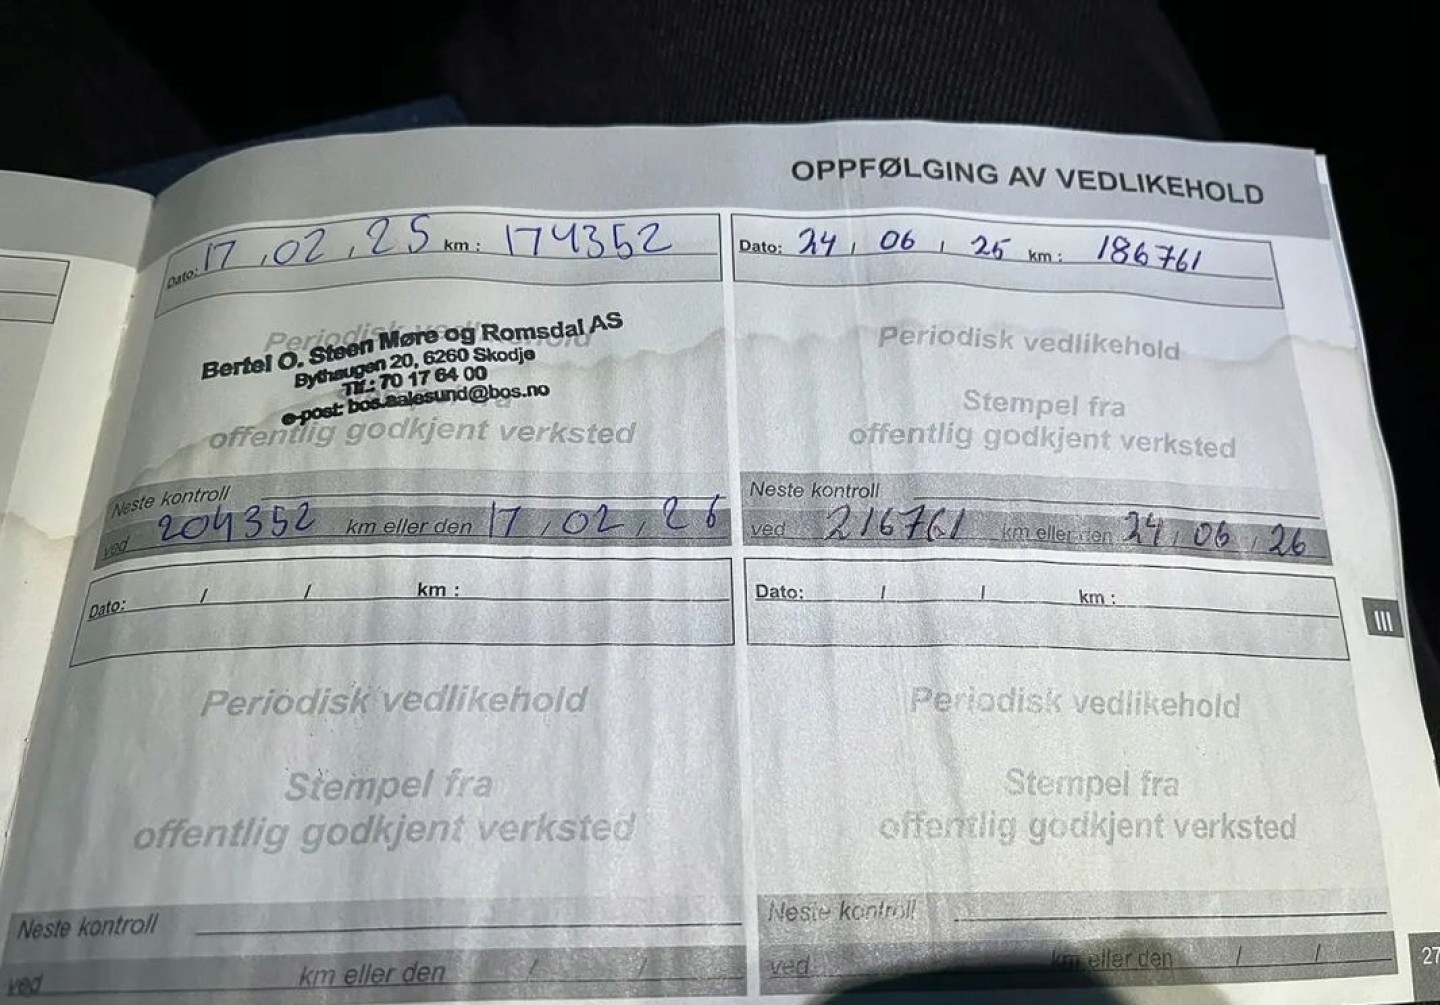 OPPFØLGING AV VEDLIKEHOLD
Dato: 17 , 02 , 25 km : 174352
Periodisk vedlikehold
Bertel O. Steen Møre og Romsdal AS
Bythaugen 20, 6260 Skodje
Tlf.: 70 17 64 00
e-post: bos.aalesund@bos.no
offentlig godkjent verksted
Neste kontroll
ved 204352 km eller den 17 , 02 , 26
Dato: 24 , 06 , 25 km : 186761
Periodisk vedlikehold
Stempel fra
offentlig godkjent verksted
Neste kontroll
ved 216761 km eller den 24 , 06 , 26
Dato: / / km :
Periodisk vedlikehold
Stempel fra
offentlig godkjent verksted
Neste kontroll
ved km eller den / /
Dato: / / km :
Periodisk vedlikehold
Stempel fra
offentlig godkjent verksted
Neste kontroll
ved km eller den / /
III
27